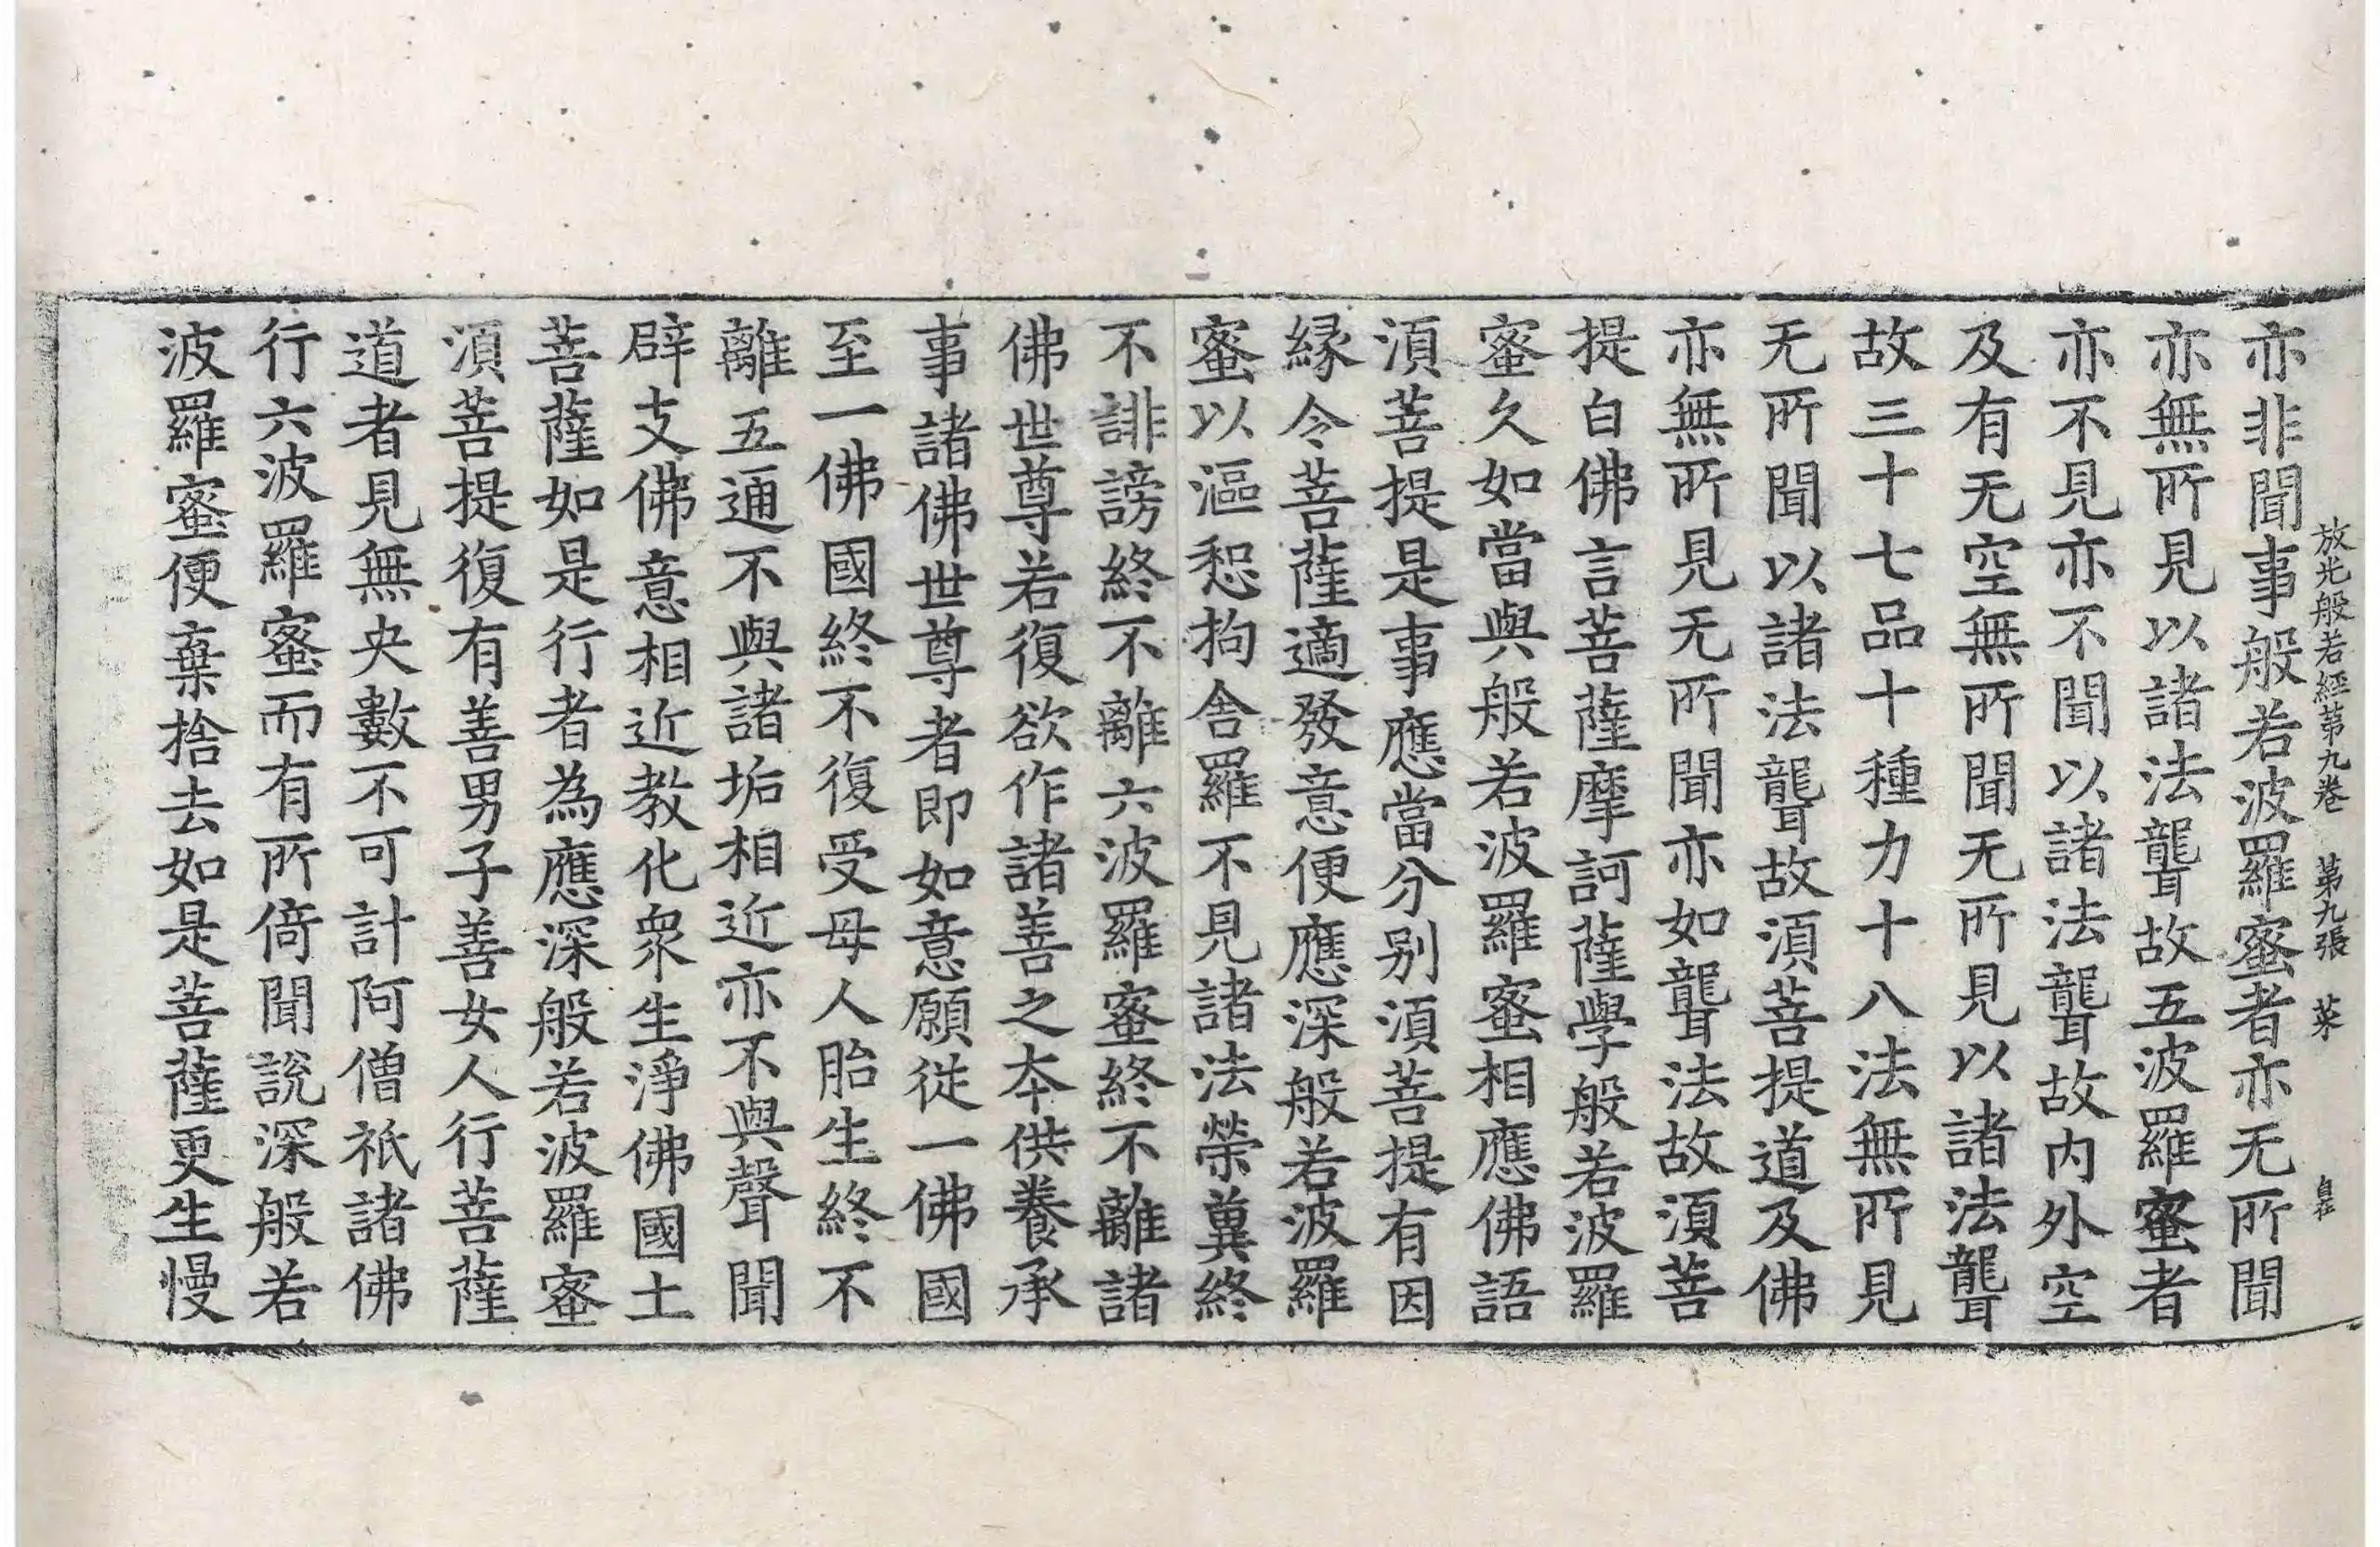 放光般若經第九卷 第九張 菜
亦非聞事般若波羅蜜者亦无所聞
亦無所見以諸法聾故五波羅蜜者
亦不見亦不聞以諸法聾故内外空
及有无空無所聞无所見以諸法聾
故三十七品十種力十八法無所見
无所聞以諸法聾故湏菩提道及佛
亦無所見无所聞亦如聾法故湏菩
提白佛言菩薩摩訶薩學般若波羅
蜜久如當與般若波羅蜜相應佛語
湏菩提是事應當分别湏菩提有因
緣令菩薩適發意便應深般若波羅
蜜以漚惒拘舍羅不見諸法榮冀終
不誹謗終不離六波羅蜜終不離諸
佛世尊若復欲作諸善之夲供養承
事諸佛世尊者即如意願従一佛國
至一佛國終不復受母人胎生終不
離五通不與諸垢相近亦不與聲聞
辟支佛意相近教化衆生淨佛國土
菩薩如是行者為應深般若波羅蜜
湏菩提復有善男子善女人行菩薩
道者見無央數不可計阿僧祇諸佛
行六波羅蜜而有所倚聞說深般若
波羅蜜便棄捨去如是菩薩更生慢